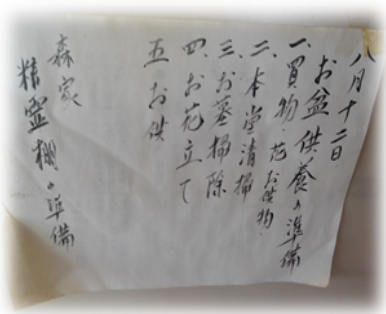 八月十二日
お盆供養の準備
一、買物・花お供物・
二、本堂清掃
三、お墓掃除
四、お花立て
五 お供
森家
精霊棚の準備